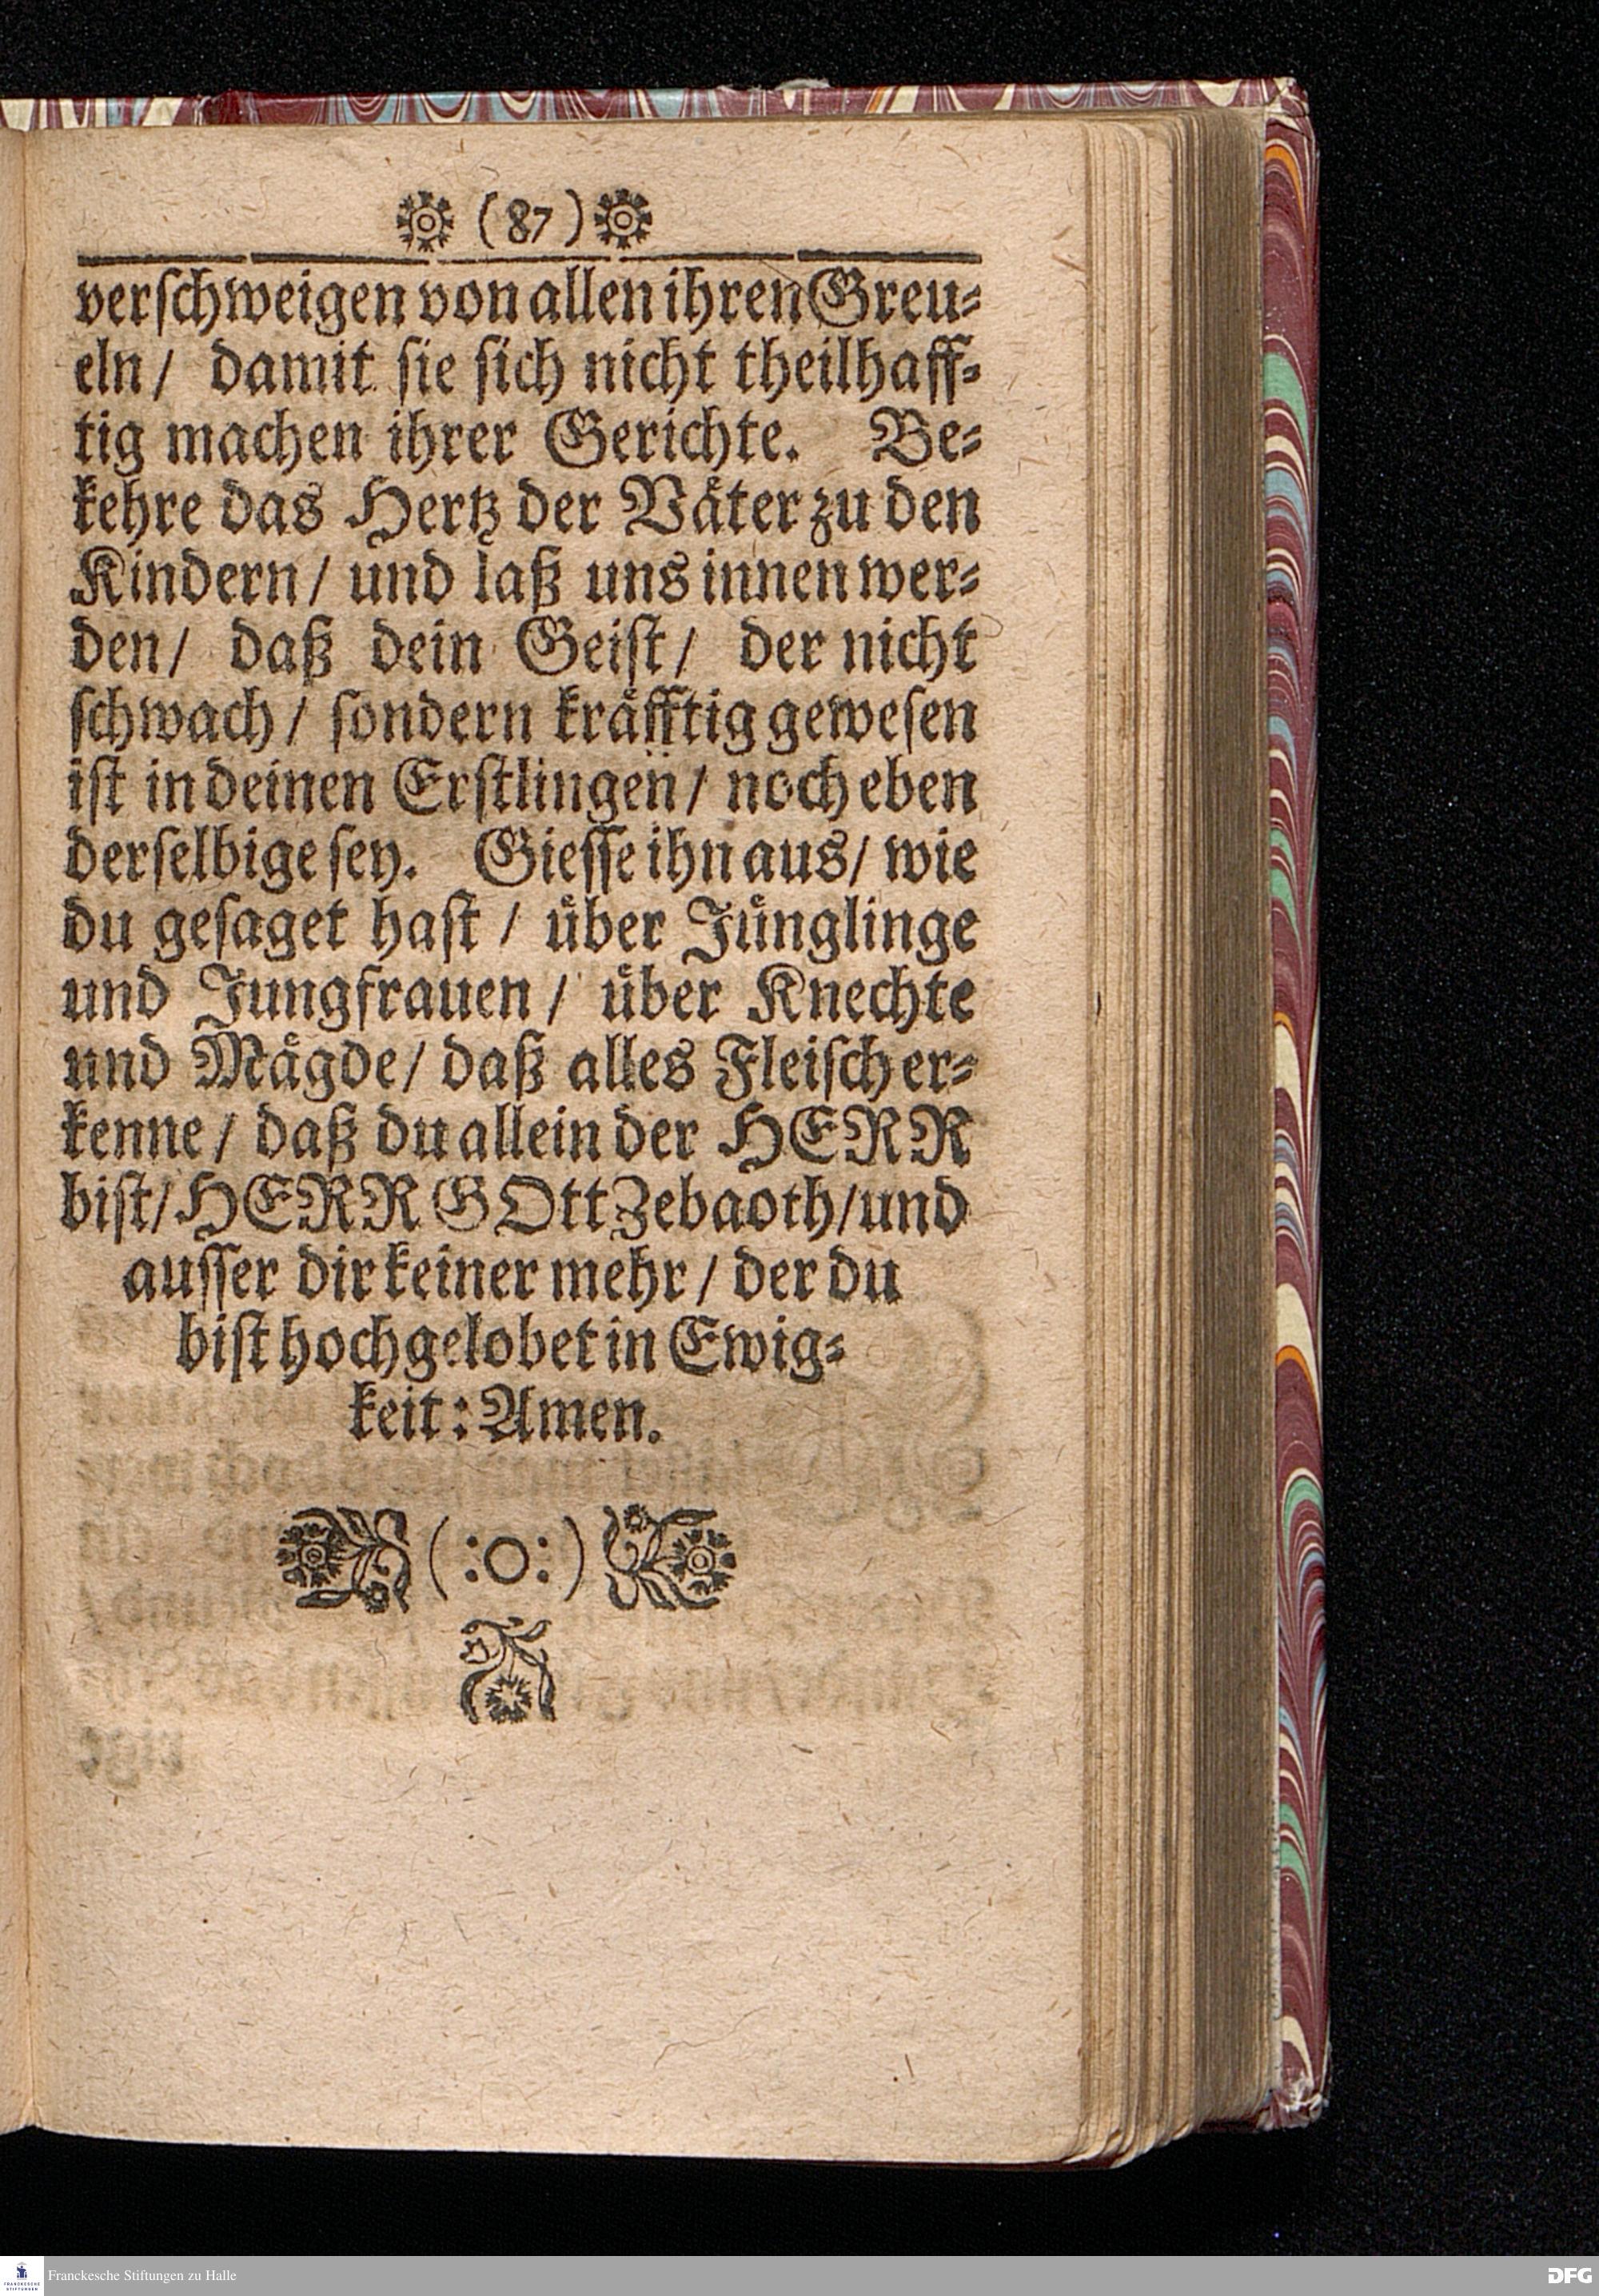 (87)
verſchweigen von allen ihren Greu⸗
eln/ damit ſie ſich nicht theilhaff⸗
tig machen ihrer Gerichte. Be⸗
kehre das Hertz der Vaͤter zu den
Kindern/ und laß uns innen wer⸗
den/ daß dein Geiſt/ der nicht
ſchwach/ ſondern kraͤfftig geweſen
iſt in deinen Erſtlingen/ noch eben
derſelbige ſey. Gieſſe ihn aus/ wie
du geſaget haſt/ uͤber Juͤnglinge
und Jungfrauen/ uͤber Knechte
und Maͤgde/ daß alles Fleiſch er⸗
kenne/ daß du allein der HERR
biſt/ HERR GOtt Zebaoth/ und
auſſer dir keiner mehr/ der du
biſt hochgelobet in Ewig⸗
keit: Amen.
(:O:)
FRANCKESCHE
STIFTUNGEN
Franckesche Stiftungen zu Halle
DFG